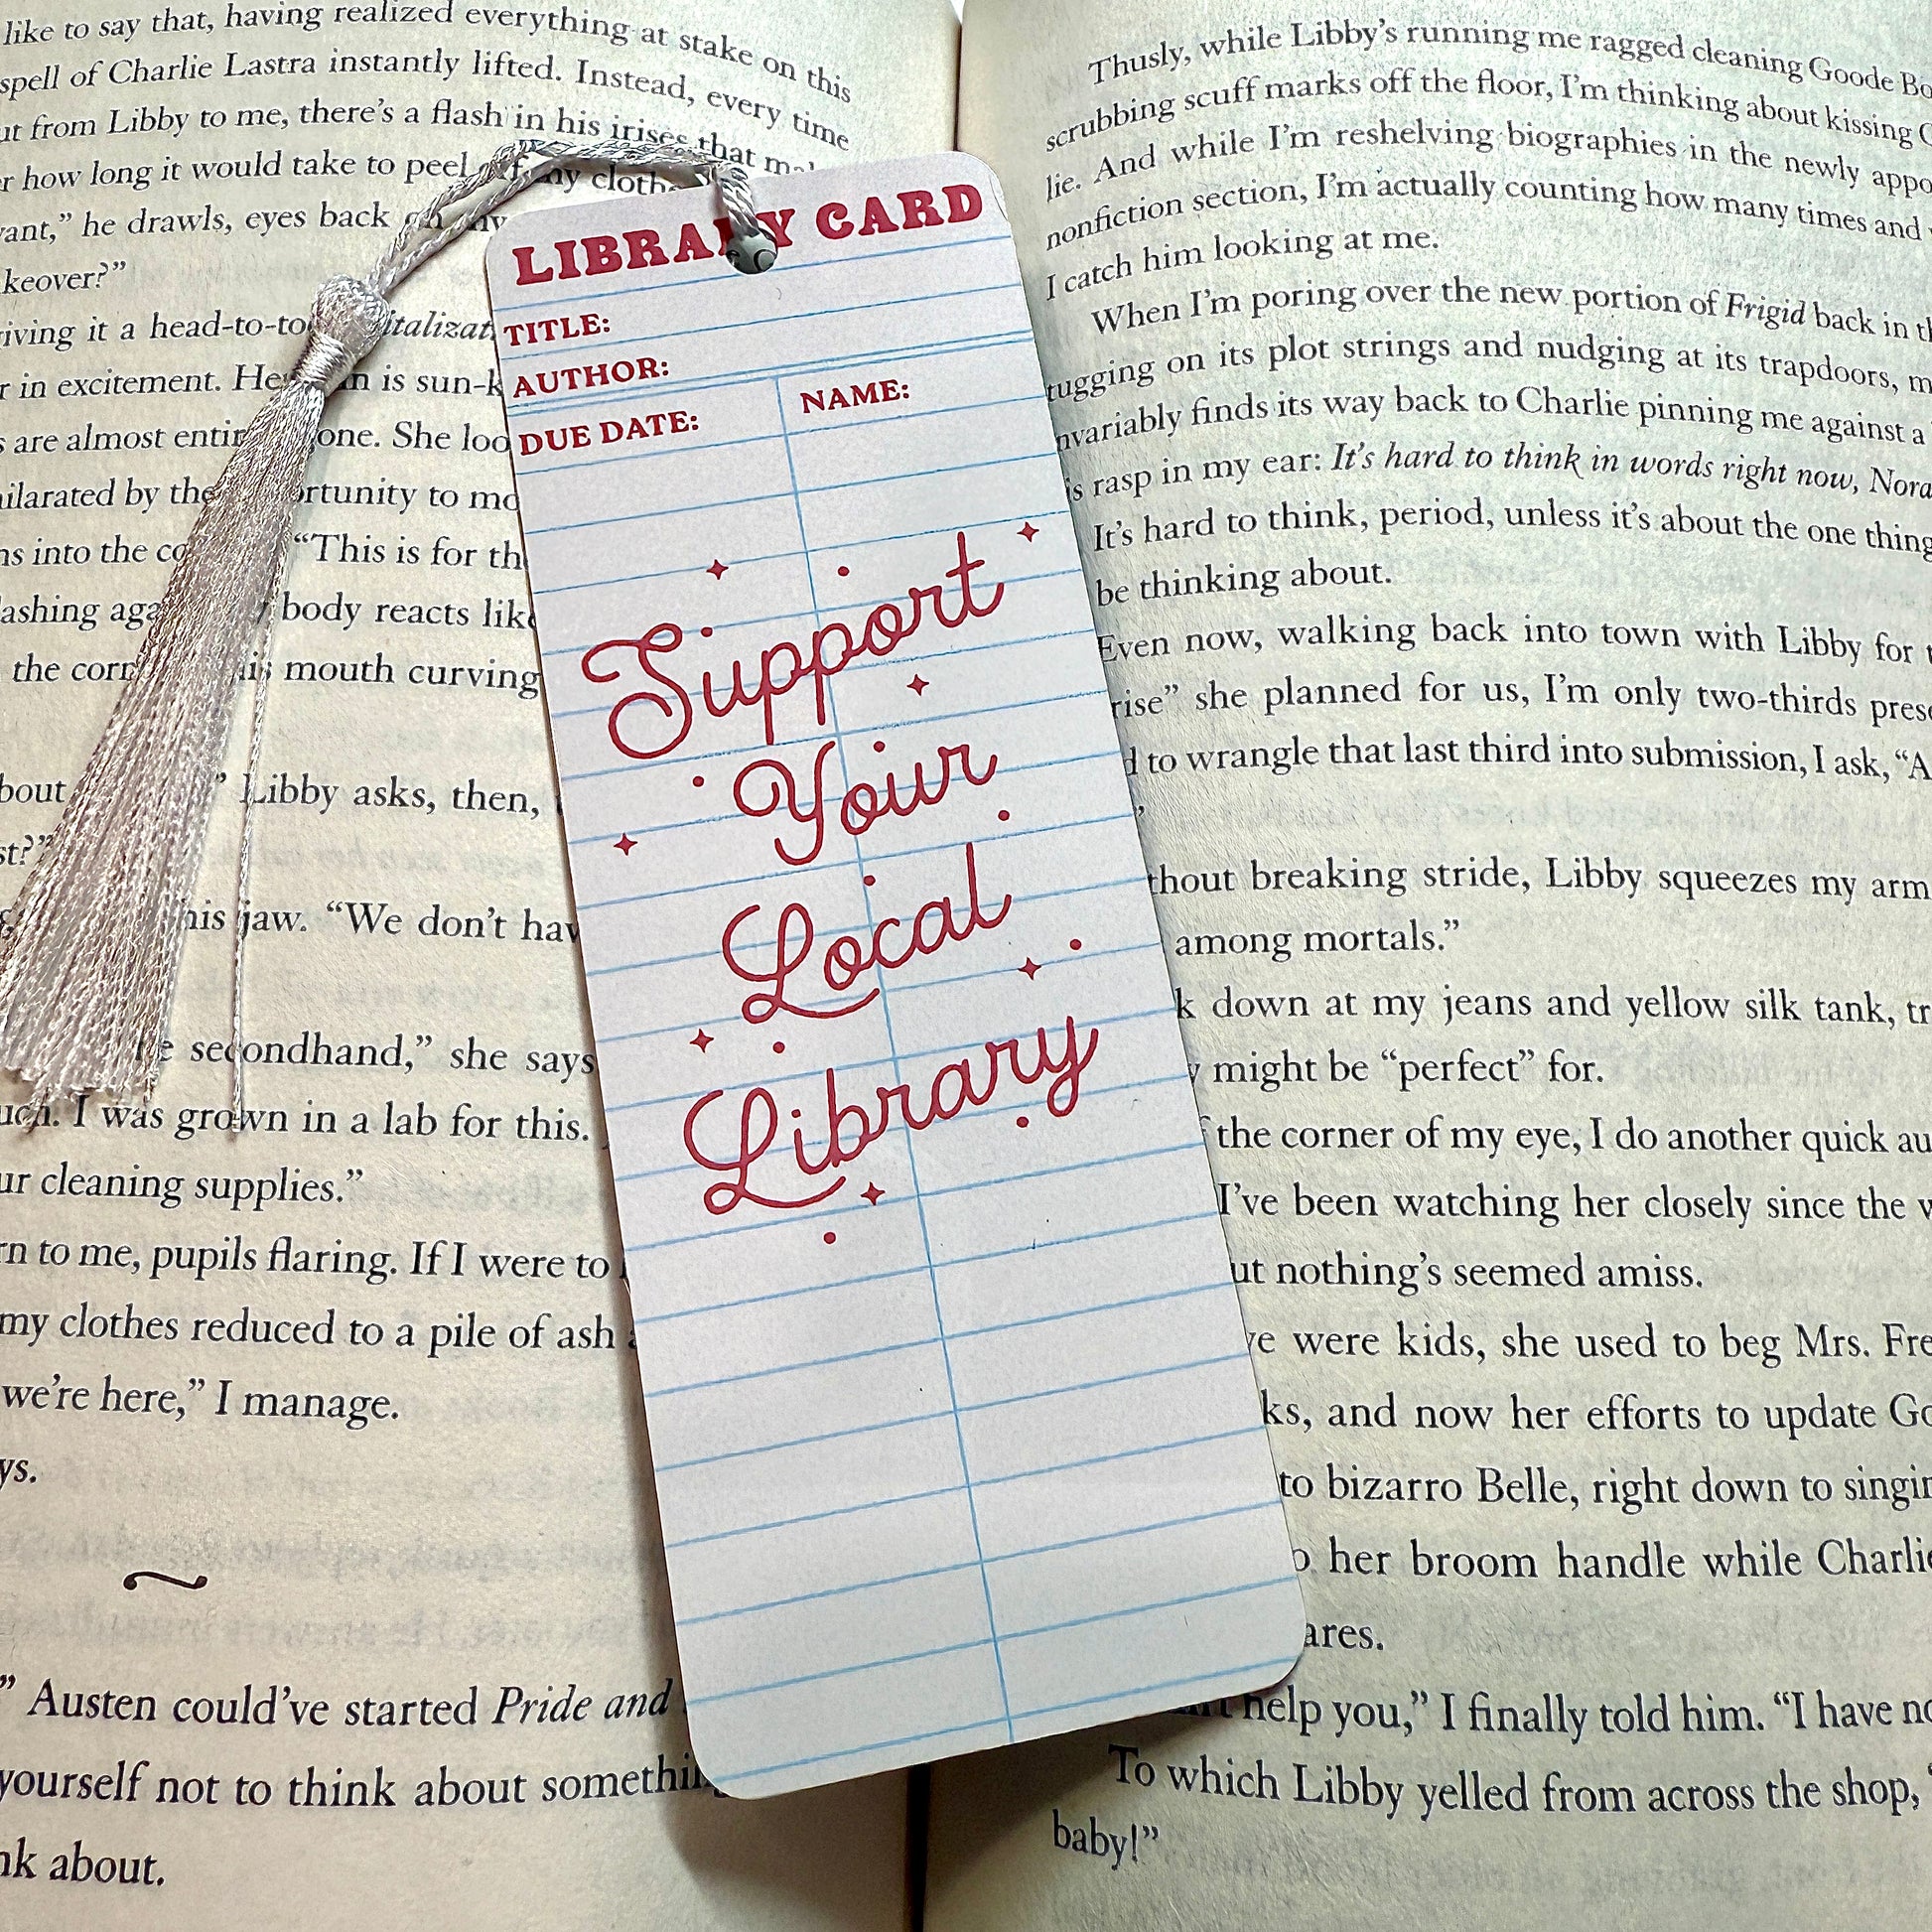 like to say that, having realized everything at stake on this
spell of Charlie Lastra instantly lifted. Instead, every time
from Libby to me, there's a flash in his irises that
how long it would take to peel my
" he drawls, eyes back
keover?"
it a head-to-to
in excitement. is sun-k
are almost one. She loo
by the to mo
into the "This is for th
body reacts lik
the mouth curving
Libby asks, then,
st?"
his jaw. "We don't hav
secondhand," she says
I was grown in a lab for this.
cleaning supplies."
to me, pupils flaring. If I were to
my clothes reduced to a pile of ash
we're here," I manage.
ys.
" Austen could've started Pride and
yourself not to think about somethin
about.
LIBRARY CARD
TITLE:
AUTHOR:
DUE DATE:
NAME:
Support
Your
Local
Library
Thusly, while Libby's running me ragged cleaning Goode Bo
scrubbing scuff marks off the floor, I'm thinking about kissing
lie. And while I'm reshelving biographies in the newly appo
nonfiction section, I'm actually counting how many times and
I catch him looking at me.
When I'm poring over the new portion of Frigid back in th
tugging on its plot strings and nudging at its trapdoors, m
nvariably finds its way back to Charlie pinning me against a
is rasp in my ear: It's hard to think in words right now, Nora
It's hard to think, period, unless it's about the one thing
be thinking about.
Even now, walking back into town with Libby for
rise" she planned for us, I'm only two-thirds prese
to wrangle that last third into submission, I ask, "A
"
thout breaking stride, Libby squeezes my arm
among mortals."
k down at my jeans and yellow silk tank, tr
might be "perfect" for.
the corner of my eye, I do another quick au
I've been watching her closely since the
ut nothing's seemed amiss.
were kids, she used to beg Mrs. Fre
ks, and now her efforts to update Go
to bizarro Belle, right down to singin
her broom handle while Charlie
ares.
help you," I finally told him. "I have no
To which Libby yelled from across the shop, "
baby!"